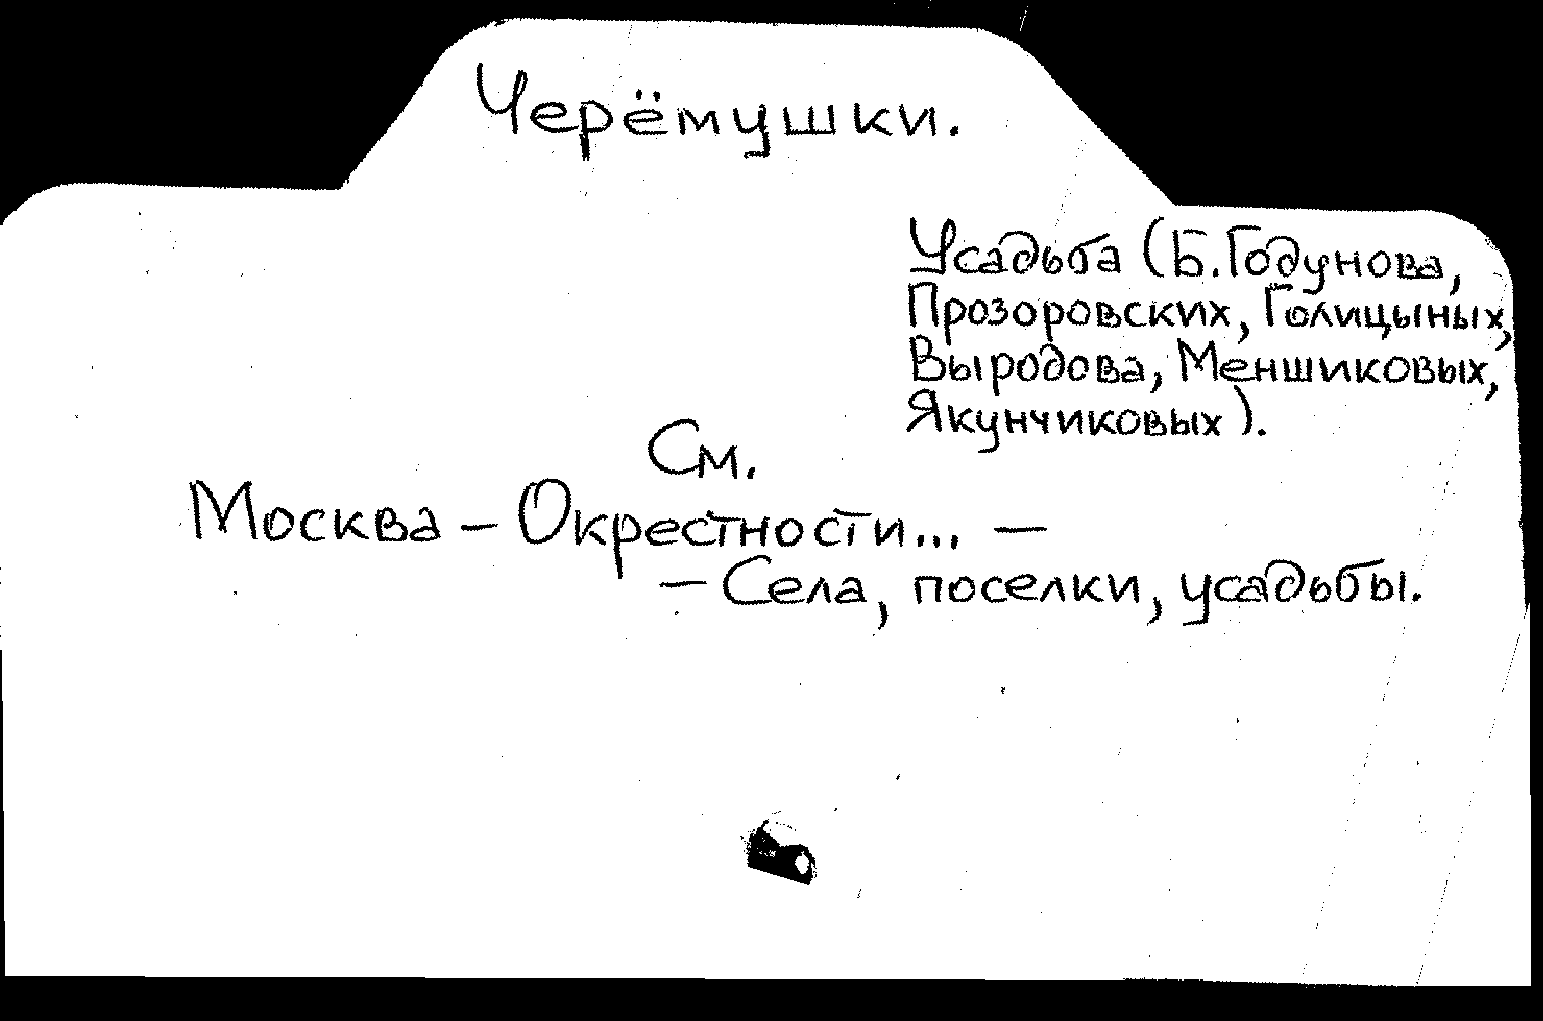 Черёмушки.
Усадьба (Б. Годунова,
Прозоровских, Голицыных,
Выродова, Меншиковых,
Якунчиковых).
См.
Москва – Окрестности... –
– Села, поселки, усадьбы.